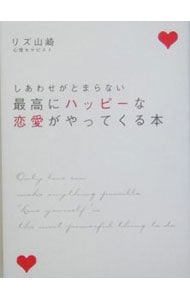 リズ山崎
心理セラピスト
しあわせがとまらない
最高にハッピーな
恋愛がやってくる本
Only love can
make anything possible
"Love yourself" is
the most powerful thing to do